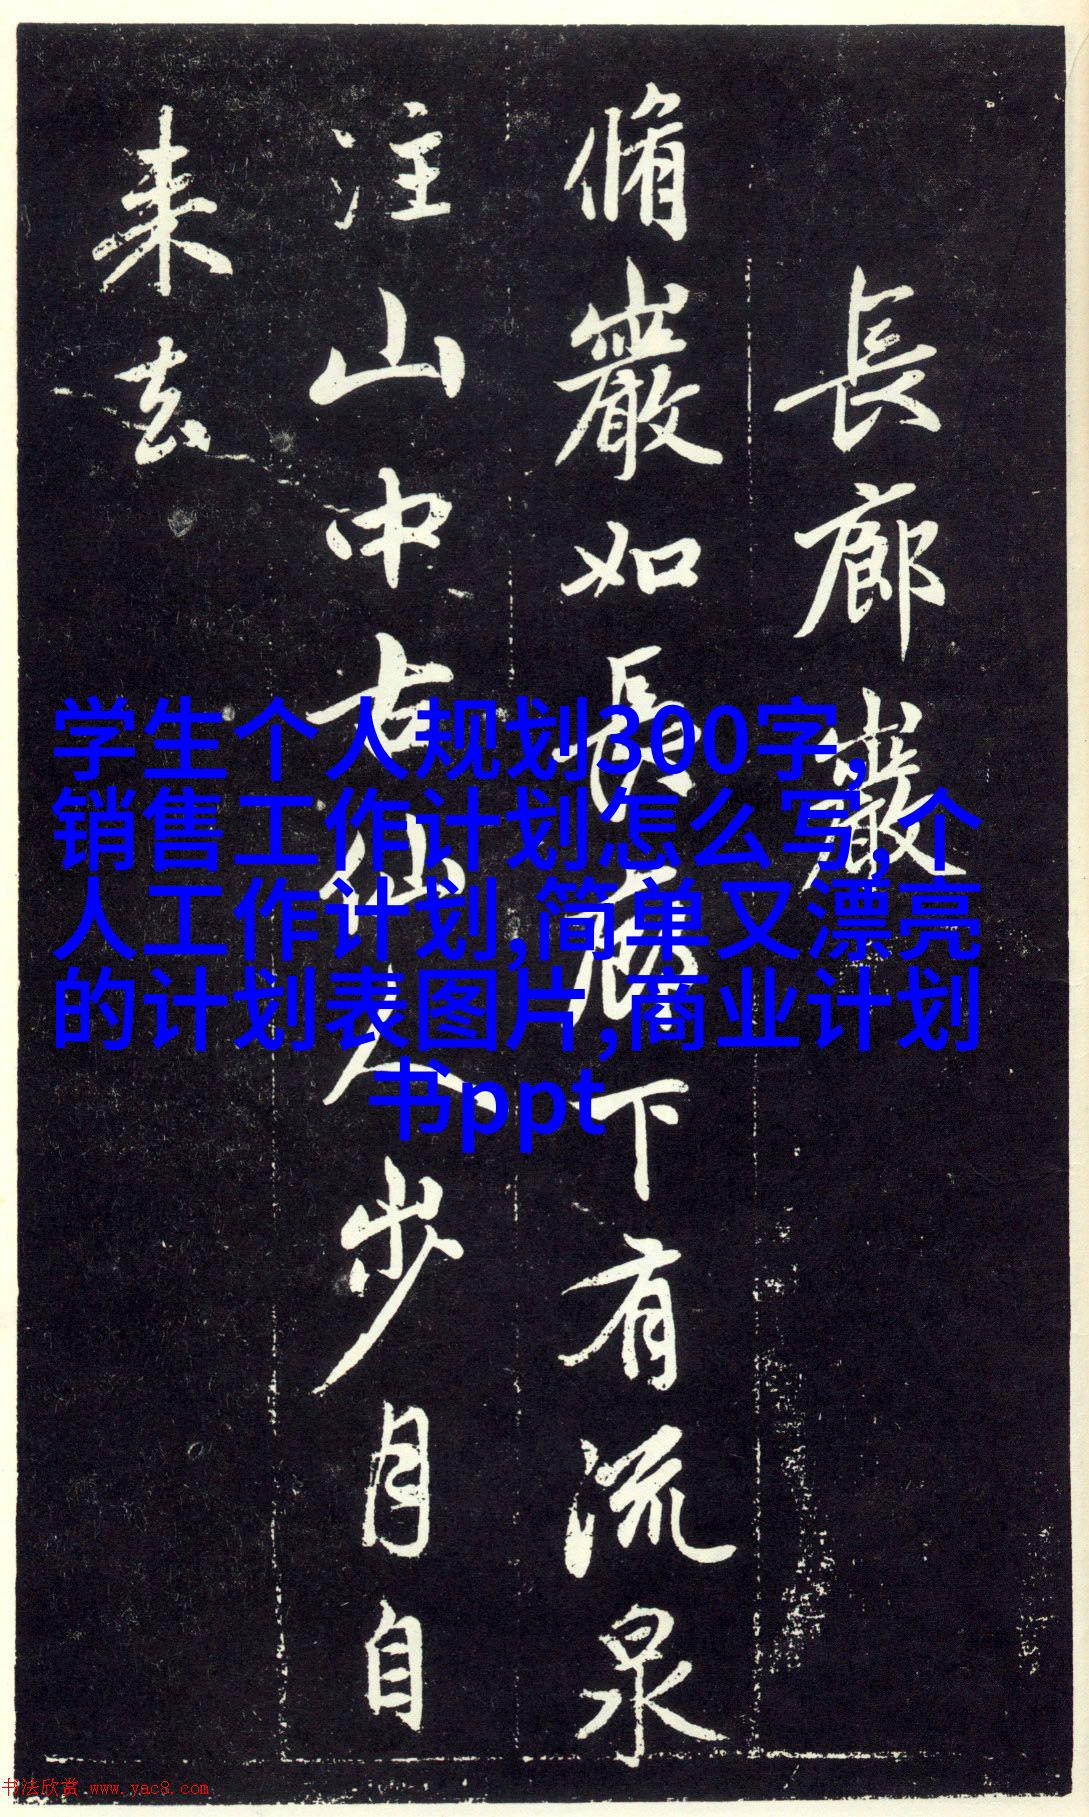 長廊巖
脩巖如長廊下有流泉
注山中古仙人步月自
来去
学生个人规划300字,
销售工作计划怎么写,个
人工作计划,简单又漂亮
的计划表图片,商业计划
书ppt
书法欣赏 www.yac8.com